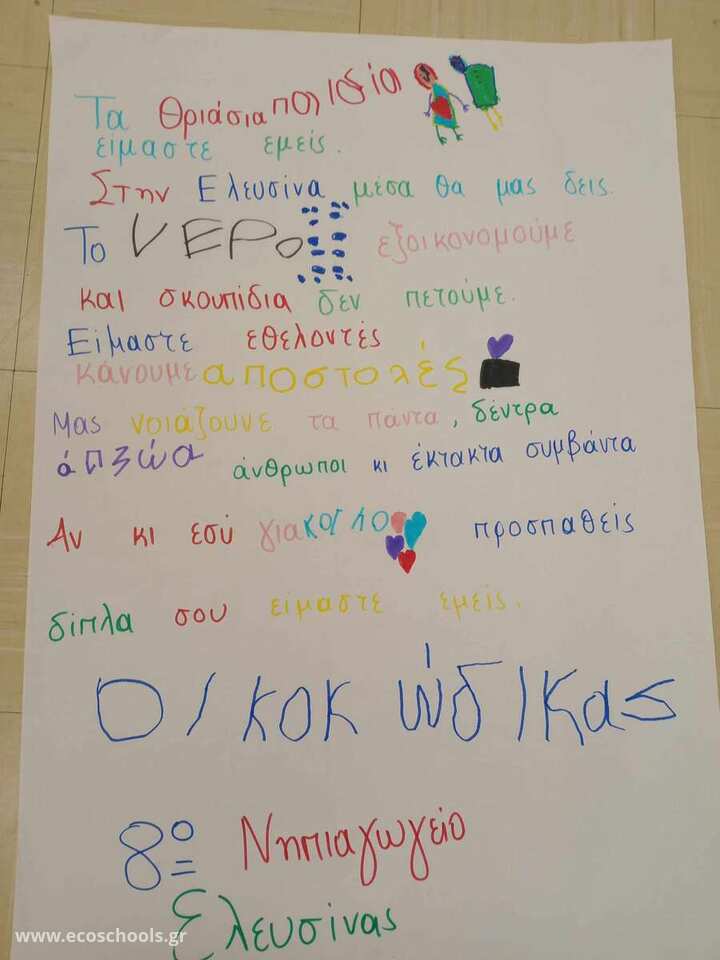 Τα Θριάσια παιδιά
είμαστε εμείς.
Στην Ελευσίνα μέσα θα μας δεις.
Το ΝΕΡο εξοικονομούμε
και σκουπίδια δεν πετούμε.
Είμαστε εθελοντές
κάνουμε αποστολές
Μας νοιάζουνε τα πάντα, δέντρα
άνθρωποι κι έκτακτα συμβάντα
Αν κι εσύ για καλό προσπαθείς
δίπλα σου είμαστε εμείς.
ΟΙκοκώδΙκας
8º Νηπιαγωγείο
Ελευσίνας
www.ecoschools.gr